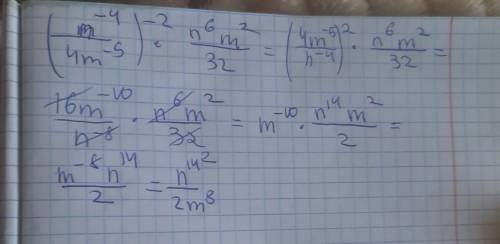 (m⁻⁴/4m⁻⁵)⁻² · n⁶m²/32 = (4m⁻⁵/n⁻⁴)² · n⁶m²/32 =
16m⁻¹⁰/n⁻⁸ · n⁶m²/32 = m⁻¹⁰ · n¹⁴m²/2 =
m⁻⁸n¹⁴/2 = n¹⁴²/2m⁸